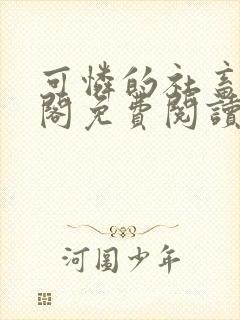 可憐的社畜
閣免費閱讀
河圖少年